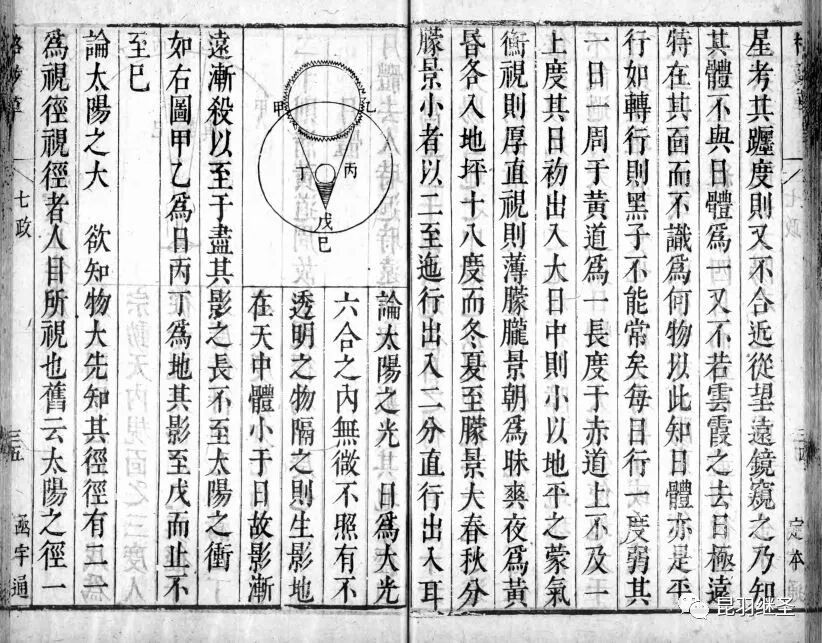 七政
定本
星考其躔度則又不合近從望遠鏡窺之乃知
其體不與日體為一又不若雲霞之去日極遠
特在其面而不識為何物以此知日體亦是平
行如轉行則黑子不能常矣每日行一度弱其
一日一周于黃道為一長度于赤道上不及一
上度其日初出入大日中則小以地平之蒙氣
衡視則厚直視則薄朦朧景朝為昧爽夜為黃
昏各入地坪十八度而冬夏至朦景大春秋分
朦景小者以二至迤行出入二分直行出入耳
乙
甲
丙
丁
戊
巳
論太陽之光　日為大光
六合之內無微不照有不
透明之物隔之則生影地
在天中體小于日故影漸
遠漸殺以至于盡其影之長不至太陽之衝
如右圖甲乙為日丙丁為地其影至戊而止不
至巳
論太陽之大　欲知物大先知其徑徑有二一
為視徑視徑者人目所視也舊云太陽之徑一
格致草
七政
三五
函宇通
昆羽继圣